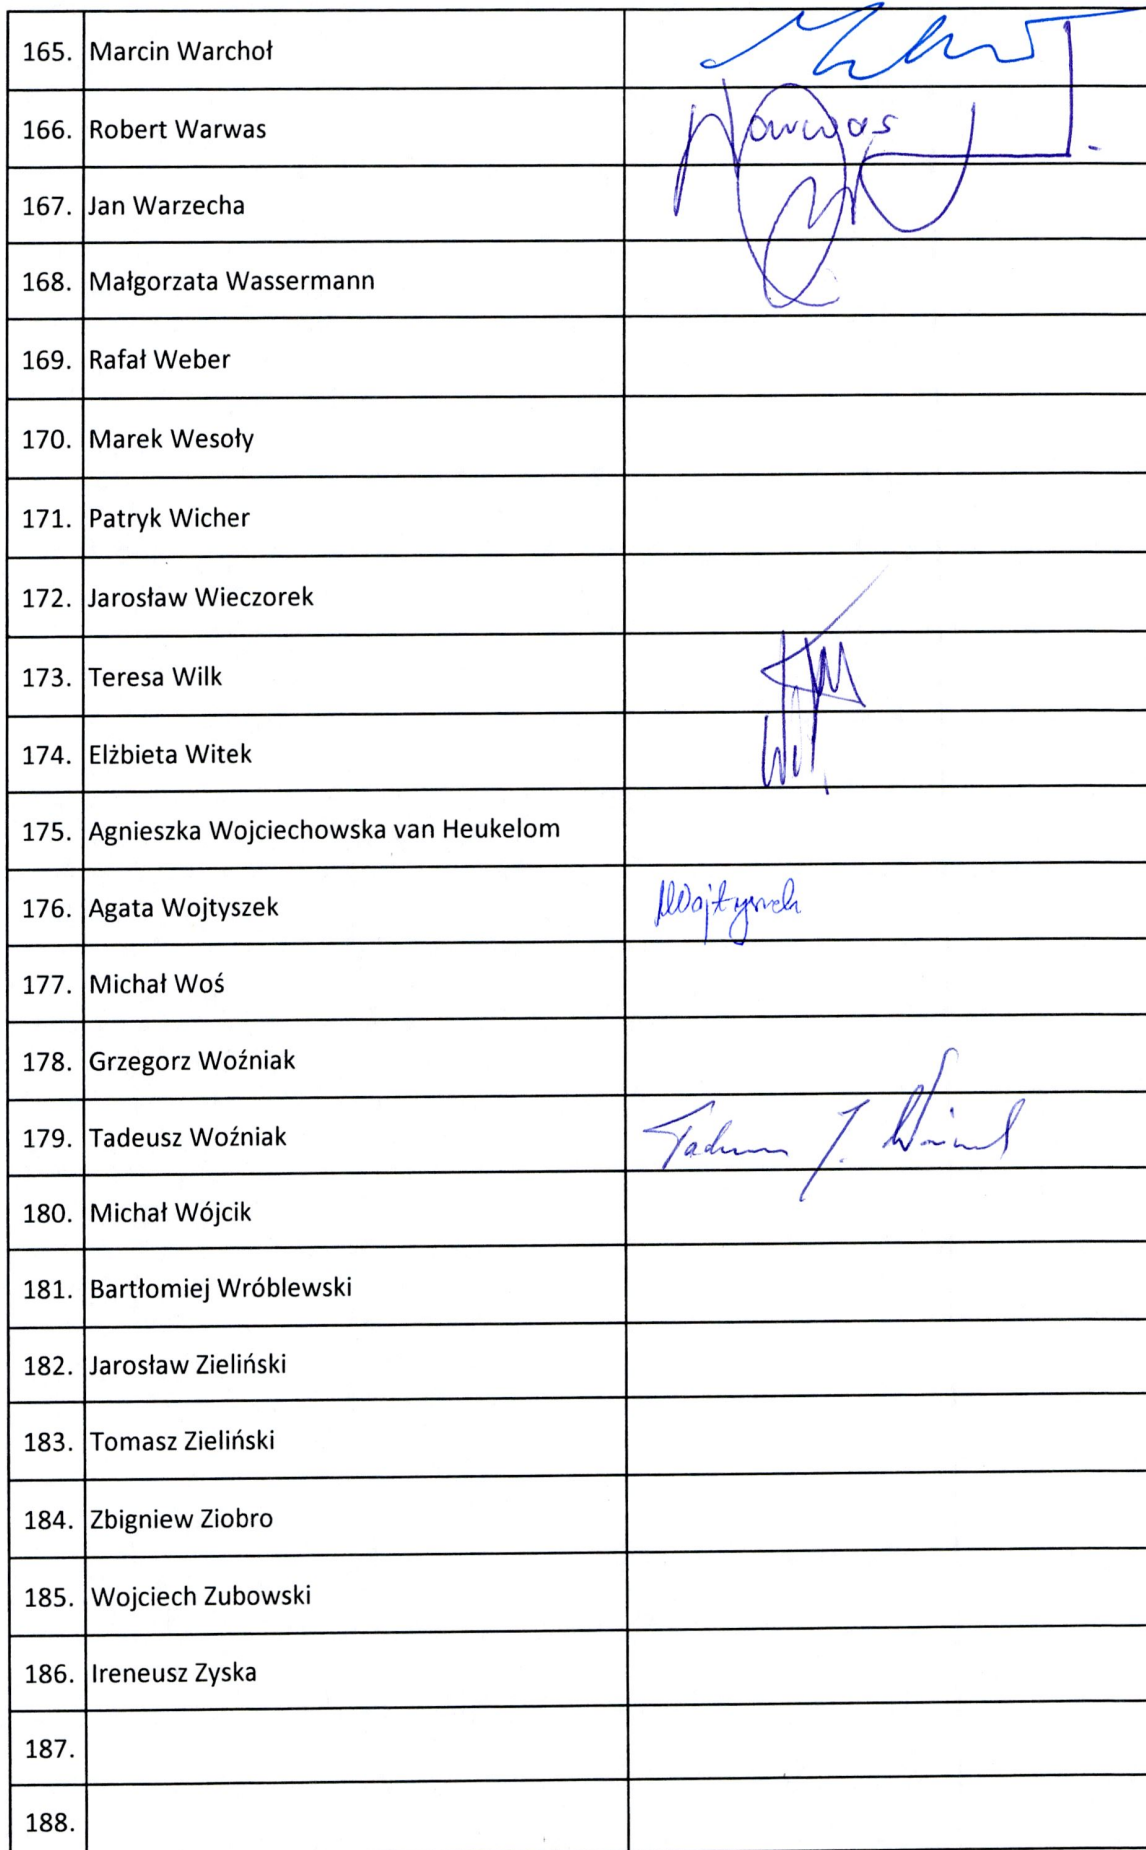 165. Marcin Warchoł
166. Robert Warwas Warwas
167. Jan Warzecha
168. Małgorzata Wassermann
169. Rafał Weber
170. Marek Wesoły
171. Patryk Wicher
172. Jarosław Wieczorek
173. Teresa Wilk
174. Elżbieta Witek
175. Agnieszka Wojciechowska van Heukelom
176. Agata Wojtyszek
177. Michał Woś
178. Grzegorz Woźniak
179. Tadeusz Woźniak
180. Michał Wójcik
181. Bartłomiej Wróblewski
182. Jarosław Zieliński
183. Tomasz Zieliński
184. Zbigniew Ziobro
185. Wojciech Zubowski
186. Ireneusz Zyska
187.
188.